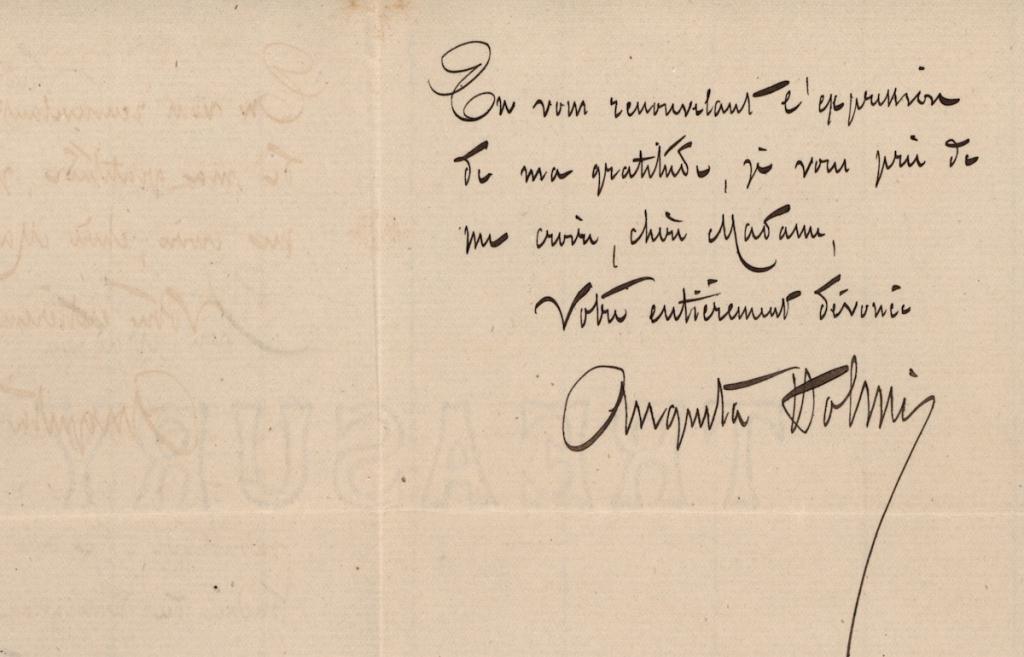 En vous renouvelant l'expression
de ma gratitude, je vous prie de
me croire, chère Madame,
Votre entièrement dévouée
Augusta Holmès
TREASURY